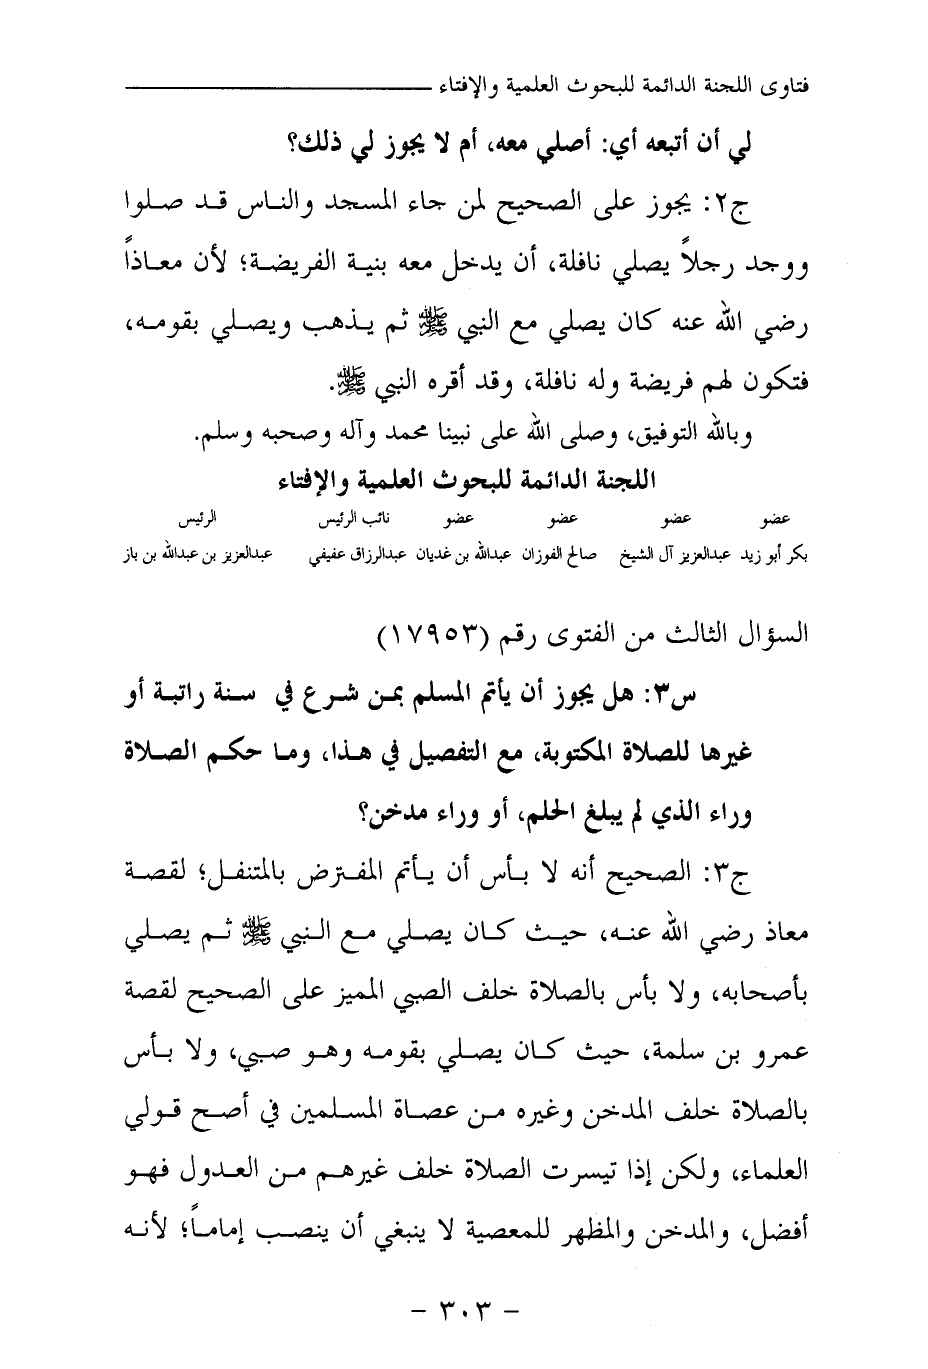 فتاوى اللجنة الدائمة للبحوث العلمية والإفتاء
لي أن أتبعه أي: أصلي معه، أم لا يجوز لي ذلك؟
ج٢: يجوز على الصحيح لمن جاء المسجد والناس قد صلوا
ووجد رجلاً يصلي نافلة، أن يدخل معه بنية الفريضة؛ لأن معاذاً
رضي الله عنه كان يصلي مع النبي ﷺ ثم يذهب ويصلي بقومه،
فتكون لهم فريضة وله نافلة، وقد أقره النبي ﷺ.
وبالله التوفيق، وصلى الله على نبينا محمد وآله وصحبه وسلم.
اللجنة الدائمة للبحوث العلمية والإفتاء
عضو عضو عضو عضو نائب الرئيس الرئيس
بكر أبو زيد عبدالعزيز آل الشيخ صالح الفوزان عبدالله بن غديان عبدالرزاق عفيفي عبدالعزيز بن عبدالله بن باز
السؤال الثالث من الفتوى رقم (١٧٩٥٣)
س٣: هل يجوز أن يأتم المسلم بمن شرع في سنة راتبة أو
غيرها للصلاة المكتوبة، مع التفصيل في هذا، وما حكم الصلاة
وراء الذي لم يبلغ الحلم، أو وراء مدخن؟
ج٣: الصحيح أنه لا بأس أن يأتم المفترض بالمتنفل؛ لقصة
معاذ رضي الله عنه، حيث كان يصلي مع النبي ﷺ ثم يصلي
بأصحابه، ولا بأس بالصلاة خلف الصبي المميز على الصحيح لقصة
عمرو بن سلمة، حيث كان يصلي بقومه وهو صبي، ولا بأس
بالصلاة خلف المدخن وغيره من عصاة المسلمين في أصح قولي
العلماء، ولكن إذا تيسرت الصلاة خلف غيرهم من العدول فهو
أفضل، والمدخن والمظهر للمعصية لا ينبغي أن ينصب إماماً؛ لأنه
- ٣٠٣ -